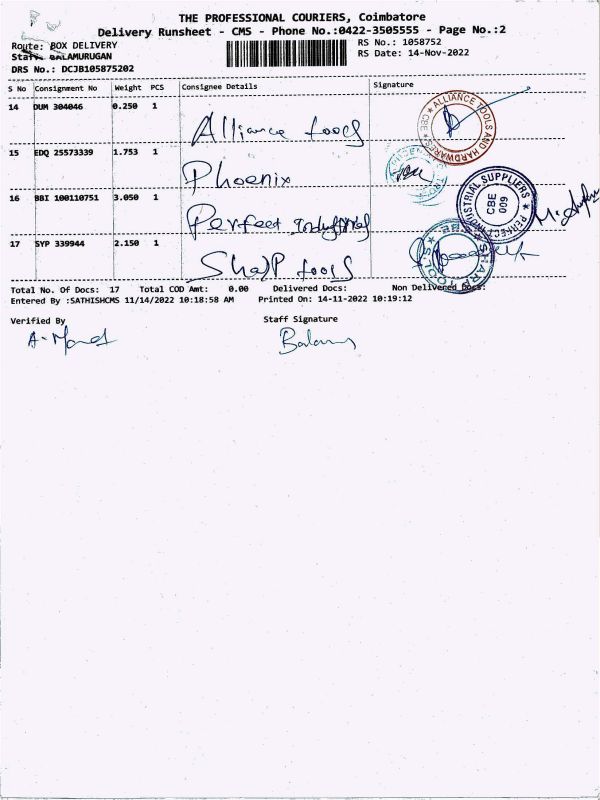 THE PROFESSIONAL COURIERS, Coimbatore
Delivery Runsheet - CMS - Phone No.:0422-3505555 - Page No.:2
Route: BOX DELIVERY
RS No.: 1058752
Staff: BALAMURUGAN
RS Date: 14-Nov-2022
DRS No.: DCJB105875202
S No Consignment No Weight PCS Consignee Details Signature
14 DUM 304046 0.250 1 Alliance tools
ALLIANCE TOOLS AND HARDWARES CBE
15 EDQ 25573339 1.753 1 Phoenix
16 BBI 100110751 3.050 1 Perfect industrial
PERFECT INDUSTRIAL SUPPLIERS CBE 009
17 SYP 339944 2.150 1 Sharp tools
SHARP TOOLS CBE
Total No. Of Docs: 17 Total COD Amt: 0.00 Delivered Docs: Non Delivered Docs:
Entered By :SATHISHCMS 11/14/2022 10:18:58 AM Printed On: 14-11-2022 10:19:12
Verified By Staff Signature